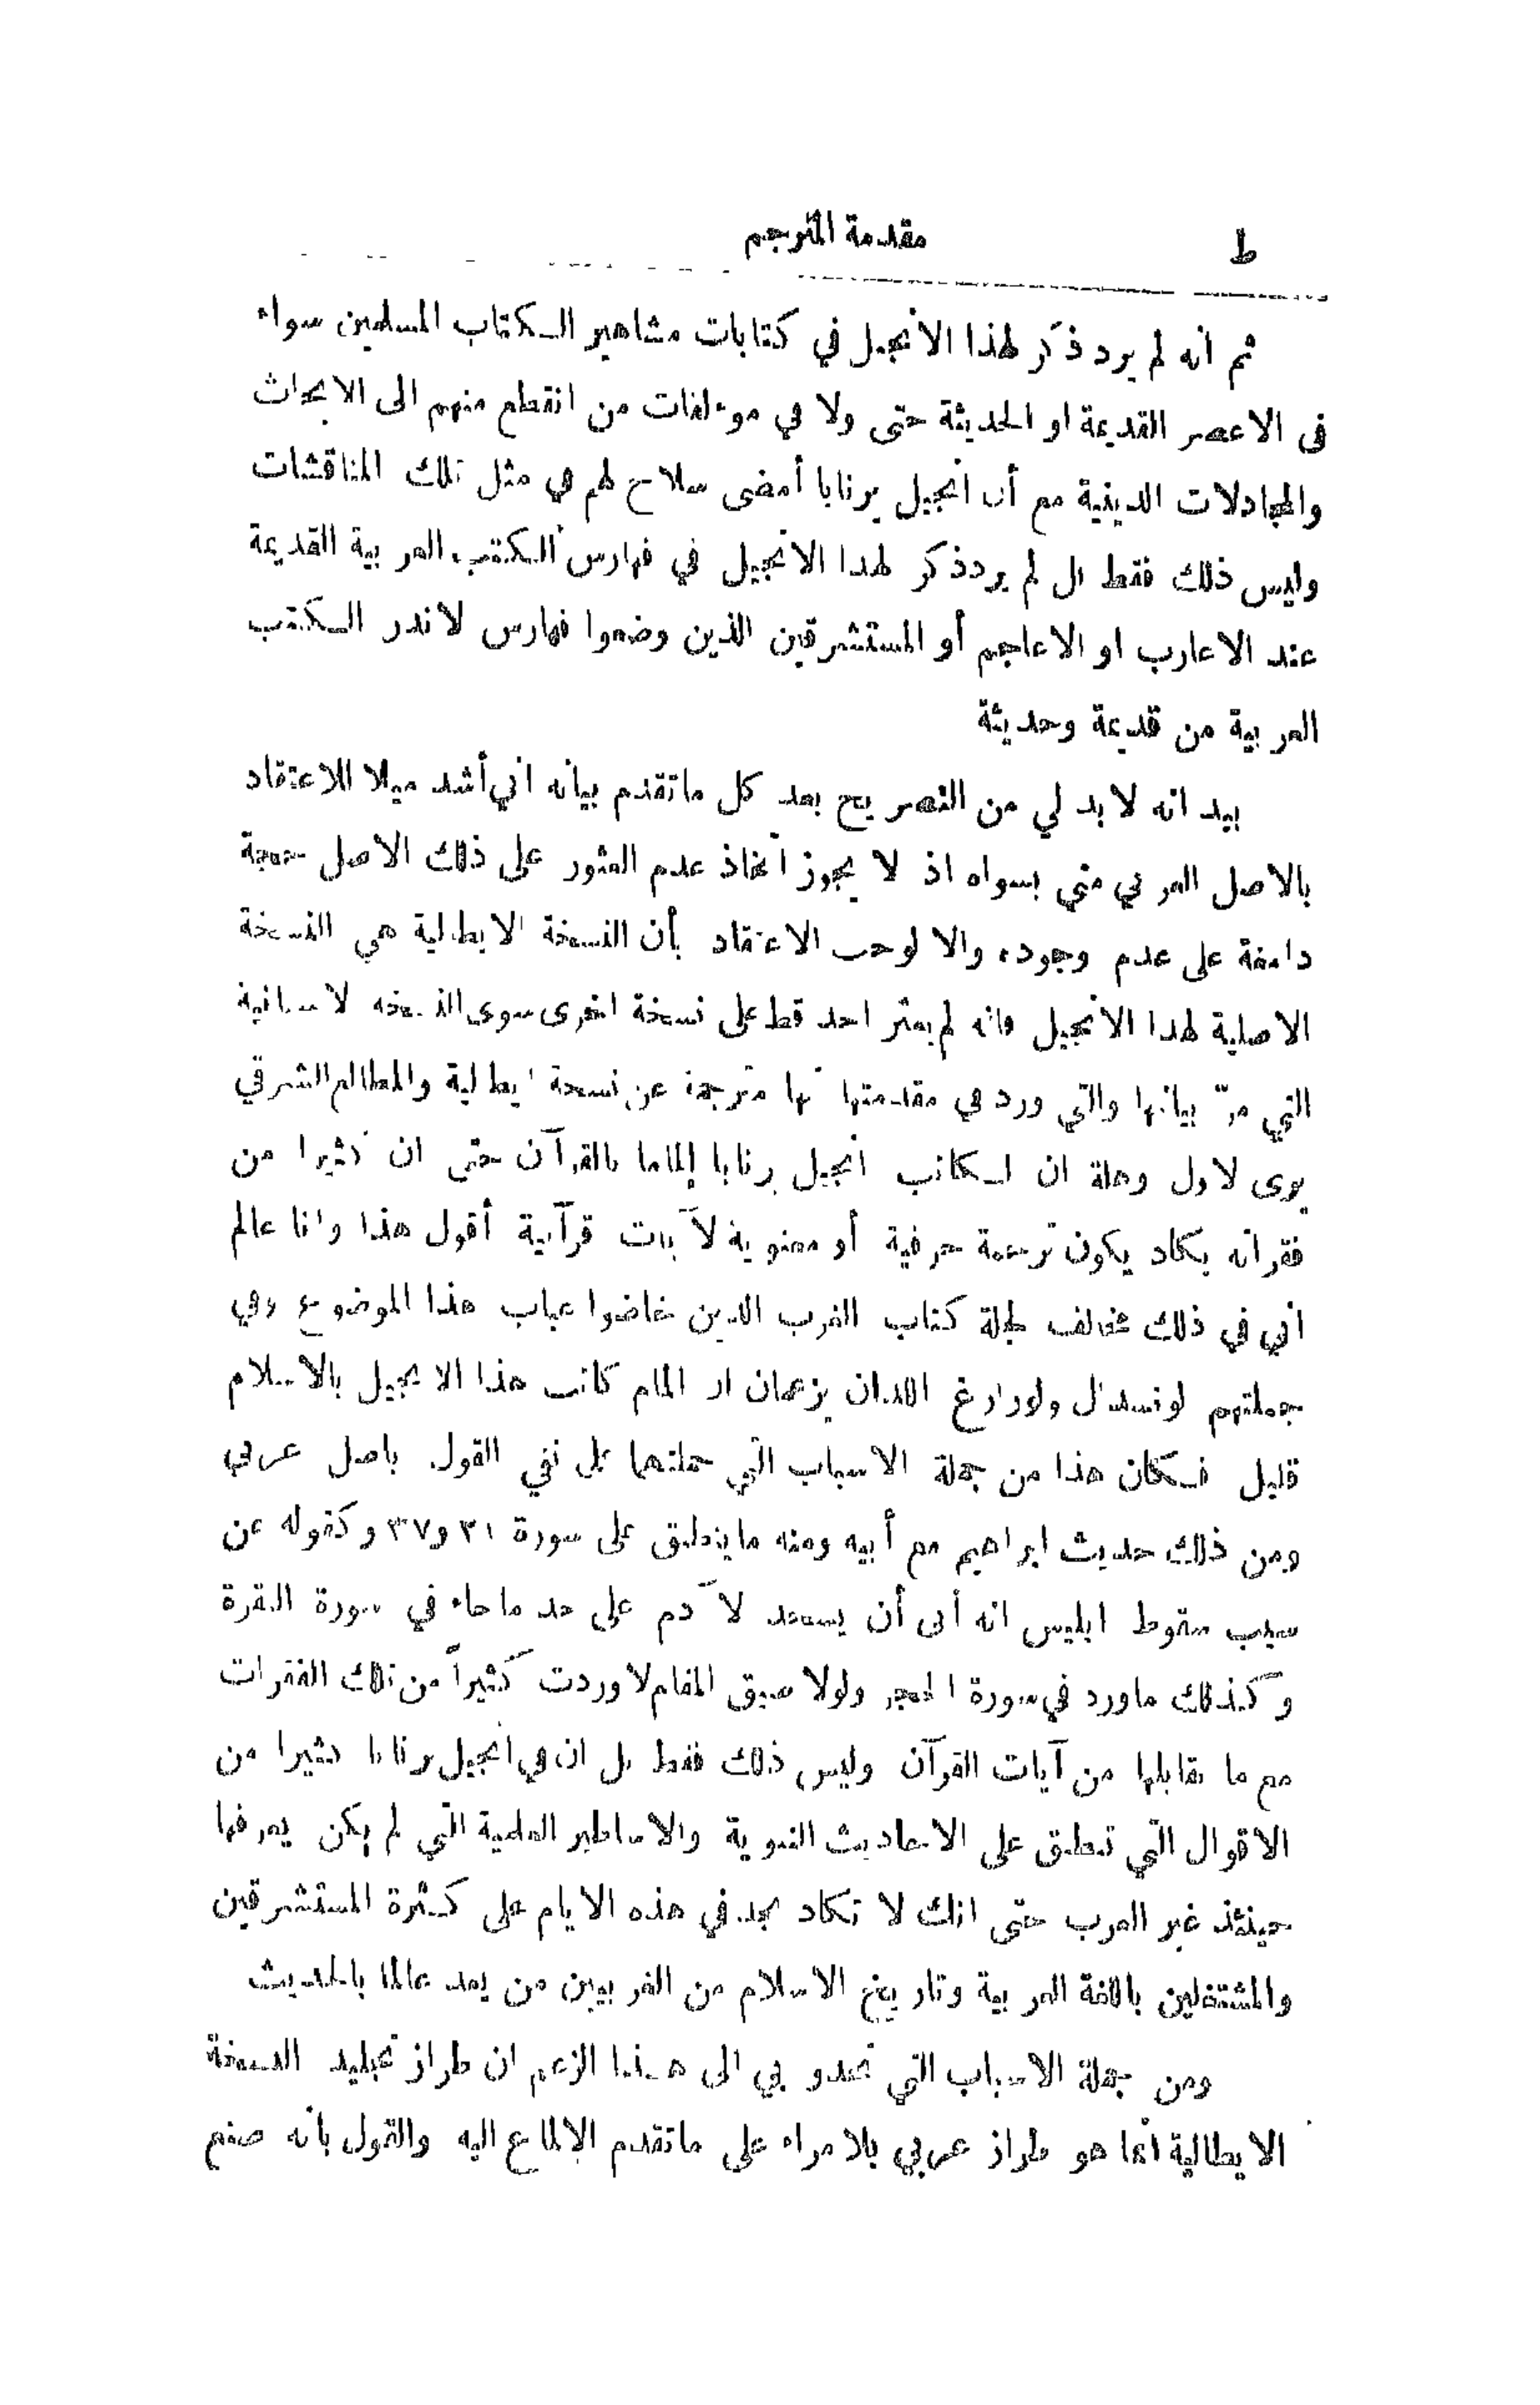 ط
مقدمة المترجم
ثم انه لم يرد ذكر لهذا الانجيل في كتابات مشاهير الكتاب المسلمين سواء
فى الاعصر القديمة او الحديثة حتى ولا في موءلفات من انقطع منهم الى الابحاث
والمجادلات الدينية مع أن انجيل برنابا أمضى سلاح لهم في مثل تلك المناقشات
وليس ذلك فقط بل لم يرد ذكر لهذا الانجيل في فهارس الكتب العربية القديمة
عند الاعارب او الاعاجم أو المستشرقين الذين وضعوا فهارس لاندر الكتب
العربية من قديمة وحديثة
بيد انه لابد لي من التصريح بعد كل ماتقدم بيانه اني أشد ميلا للاعتقاد
بالاصل العربي مني بسواه اذ لا يجوز اتخاذ عدم العثور على ذلك الاصل حجة
دامغة على عدم وجوده والا لوجب الاعتقاد بأن النسخة الايطالية هي النسخة
الاصلية لهذا الانجيل فانه لم يعثر احد قط على نسخة اخرى سوى النسخة الاسبانية
التي مرّ بيانها والتي ورد في مقدمتها انها مترجمة عن نسخة ايطالية والمطالع الشرقي
يرى لاول وهلة ان لكاتب انجيل برنابا إلماما بالقرآن حتى ان كثيرا من
فقراته يكاد يكون ترجمة حرفية أو معنوية لآيات قرآنية أقول هذا وانا عالم
اني في ذلك مخالف لجلة كتاب الغرب الذين خاضوا عباب هذا الموضوع وفي
جملتهم لونسدال ولورارغ اللذان يزعمان ان المام كاتب هذا الانجيل بالاسلام
قليل فكان هذا من جملة الاسباب التي حملتهما على نفي القول باصل عربي
ومن ذلك حديث ابراهيم مع أبيه ومنه ماينطبق على سورة ٢١ و٣٧ وكقوله عن
سبب سقوط ابليس انه أبى أن يسجد لآدم على حد ماجاء في سورة البقرة
وكذلك ماورد في سورة الحجر ولولا ضيق المقام لاوردت كثيراً من تلك الفقرات
مع ما يقابلها من آيات القرآن وليس ذلك فقط بل ان في انجيل برنابا كثيرا من
الاقوال التي تنطبق على الاحاديث النبوية والاساطير العلمية التي لم يكن يعرفها
حينئذ غير العرب حتى انك لا تكاد تجد في هذه الايام على كثرة المستشرقين
والمشتغلين باللغة العربية وتاريخ الاسلام من الغربيين من يعد عالما بالحديث
ومن جملة الاسباب التي تحدو بي الى هذا الزعم ان طراز تجليد النسخة
الايطالية انما هو طراز عربي بلا مراء على ماتقدم الالماع اليه والقول بأنه صنع